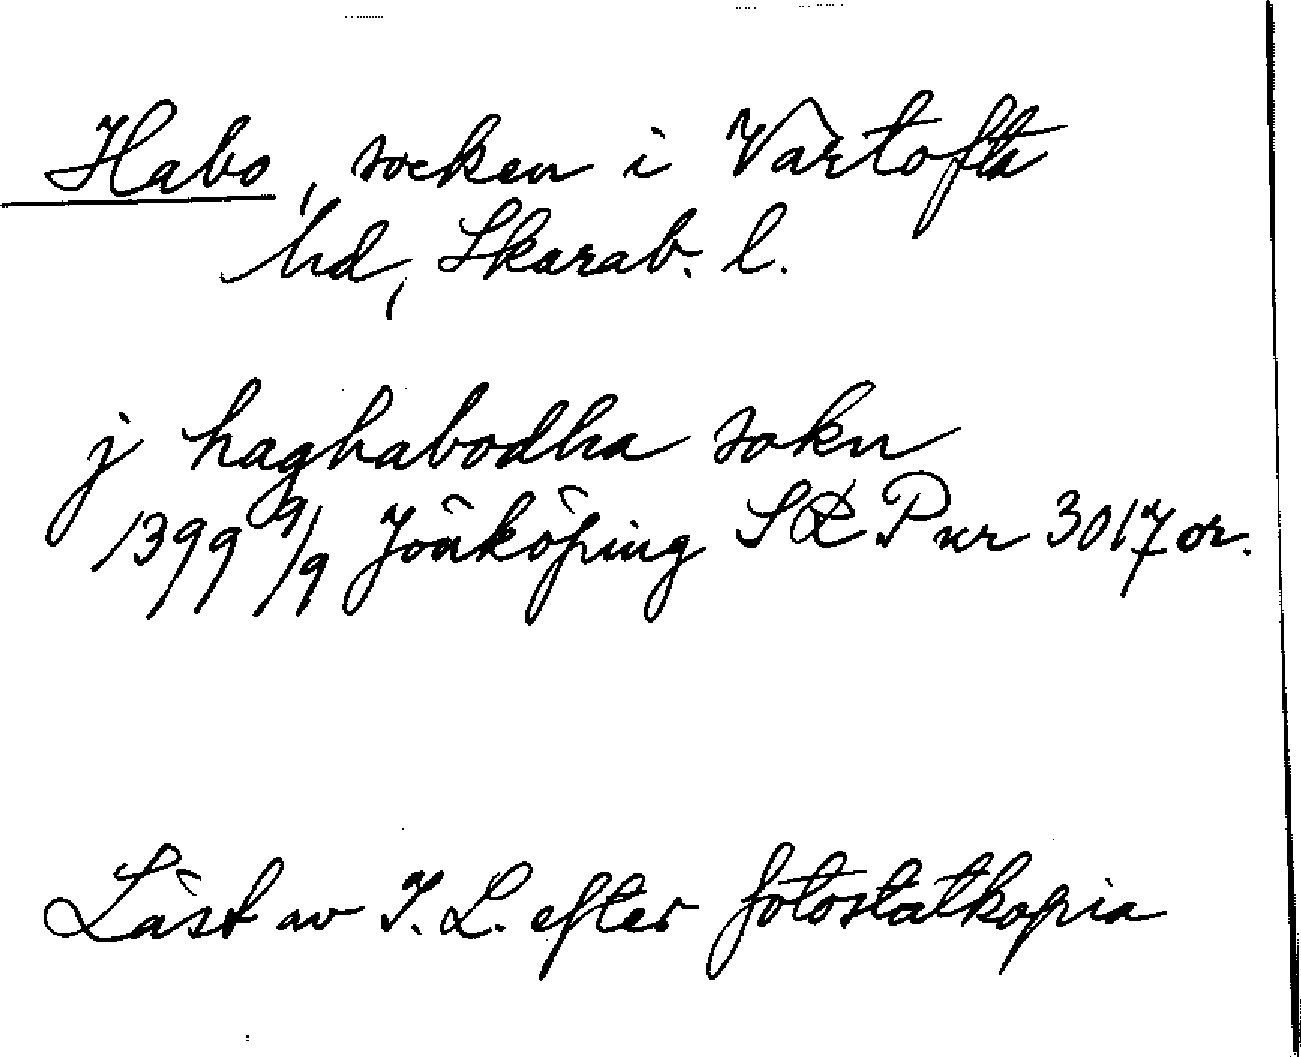 Habo, socken i Vartofta
hd, Skarab. l.
j haghabodha sokn
1399 9/9 Jönköping SRP nr 3017 or.
Läst av I. L. efter fotostatkopia